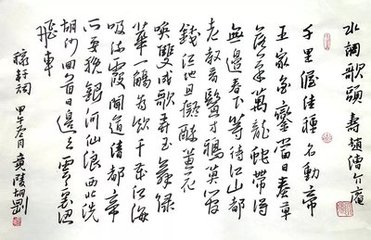 水調歌頭 壽趙漕介庵
千里渥洼種名動帝
王家金鑾當日奏草
落筆萬龍蛇帶得
無邊春下等待江山都
老教看鬢方鴉莫管
錢流地且擬醉黄花
喚雙成歌弄玉舞綠
華一觴為飲千歲江海
吸流霞聞道清都帝
所要挽銀河仙浪西北洗
胡沙回首日邊去雲裏認
飛車
稼軒詞 甲午 月 黄陵胡剛